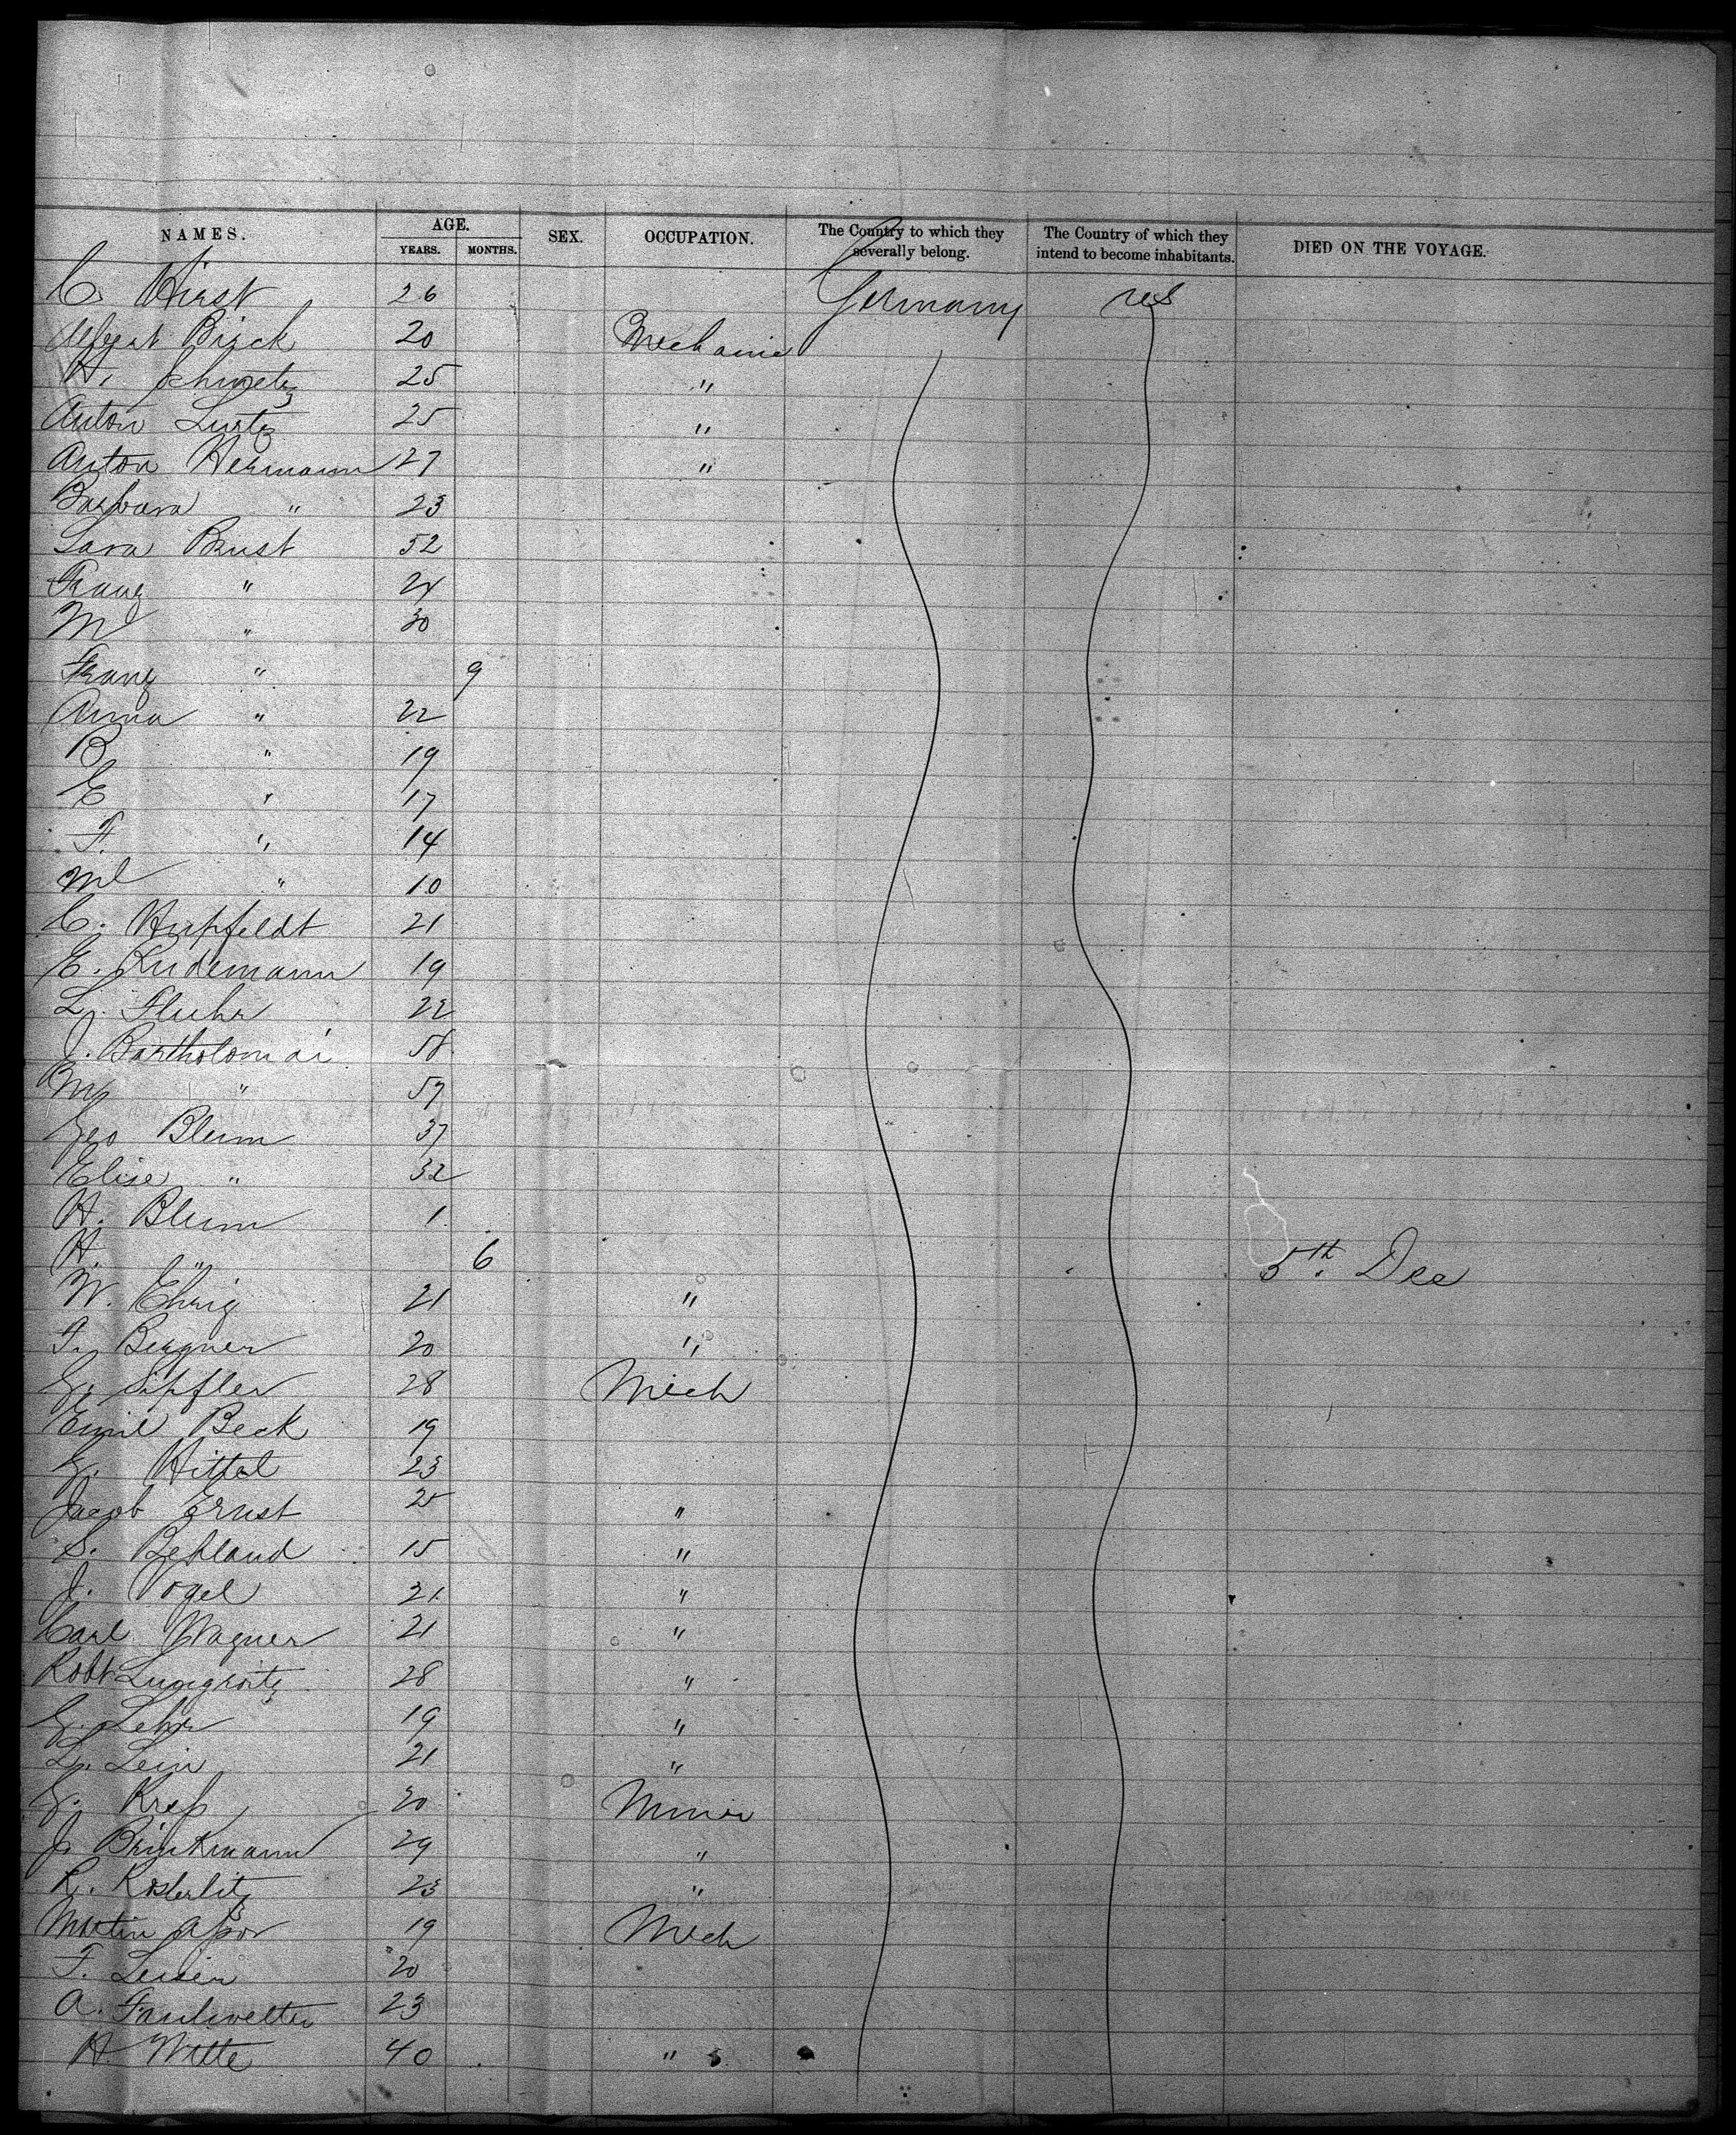 NAMES. AGE. YEARS. MONTHS. SEX. OCCUPATION. The Country to which they severally belong. The Country of which they intend to become inhabitants. DIED ON THE VOYAGE.
C. Hirst 26 Germany
Birck 20 Mechanic
H. 25 "
Anton Lurtz 25 "
Anton Hermann 27 "
Barbara " 23
Sara Brust 52
Franz " 24
M " 30
Franz " 9
Anna " 22
B " 19
E " 17
F. " 14
Ml " 10
C. Hupfeldt 21
E. Rudemann 19
L. Fluhr 22
J. Bartholomäi 58
M " 57
Geo Blum 37
Elise " 32
H. Blum 1
H. " 6 5th. Dec
W. Ehrig 21 "
F. Bergner 20 "
G. Sipfler 28 Mech
Emil Beck 19
G. Hittal 23
Jacob Ernst 25 "
S. 15 "
J. Vogel 21 "
Carl Wagner 21 "
Robt 28 "
G. Lehr 19 "
L. Lein 21 "
G. Kreß 20 Miner
J. Brinkmann 29 "
R. Kosterlitz 23 "
Martin 19 Mech
F. 20
A. 23
H. Witte 40 "